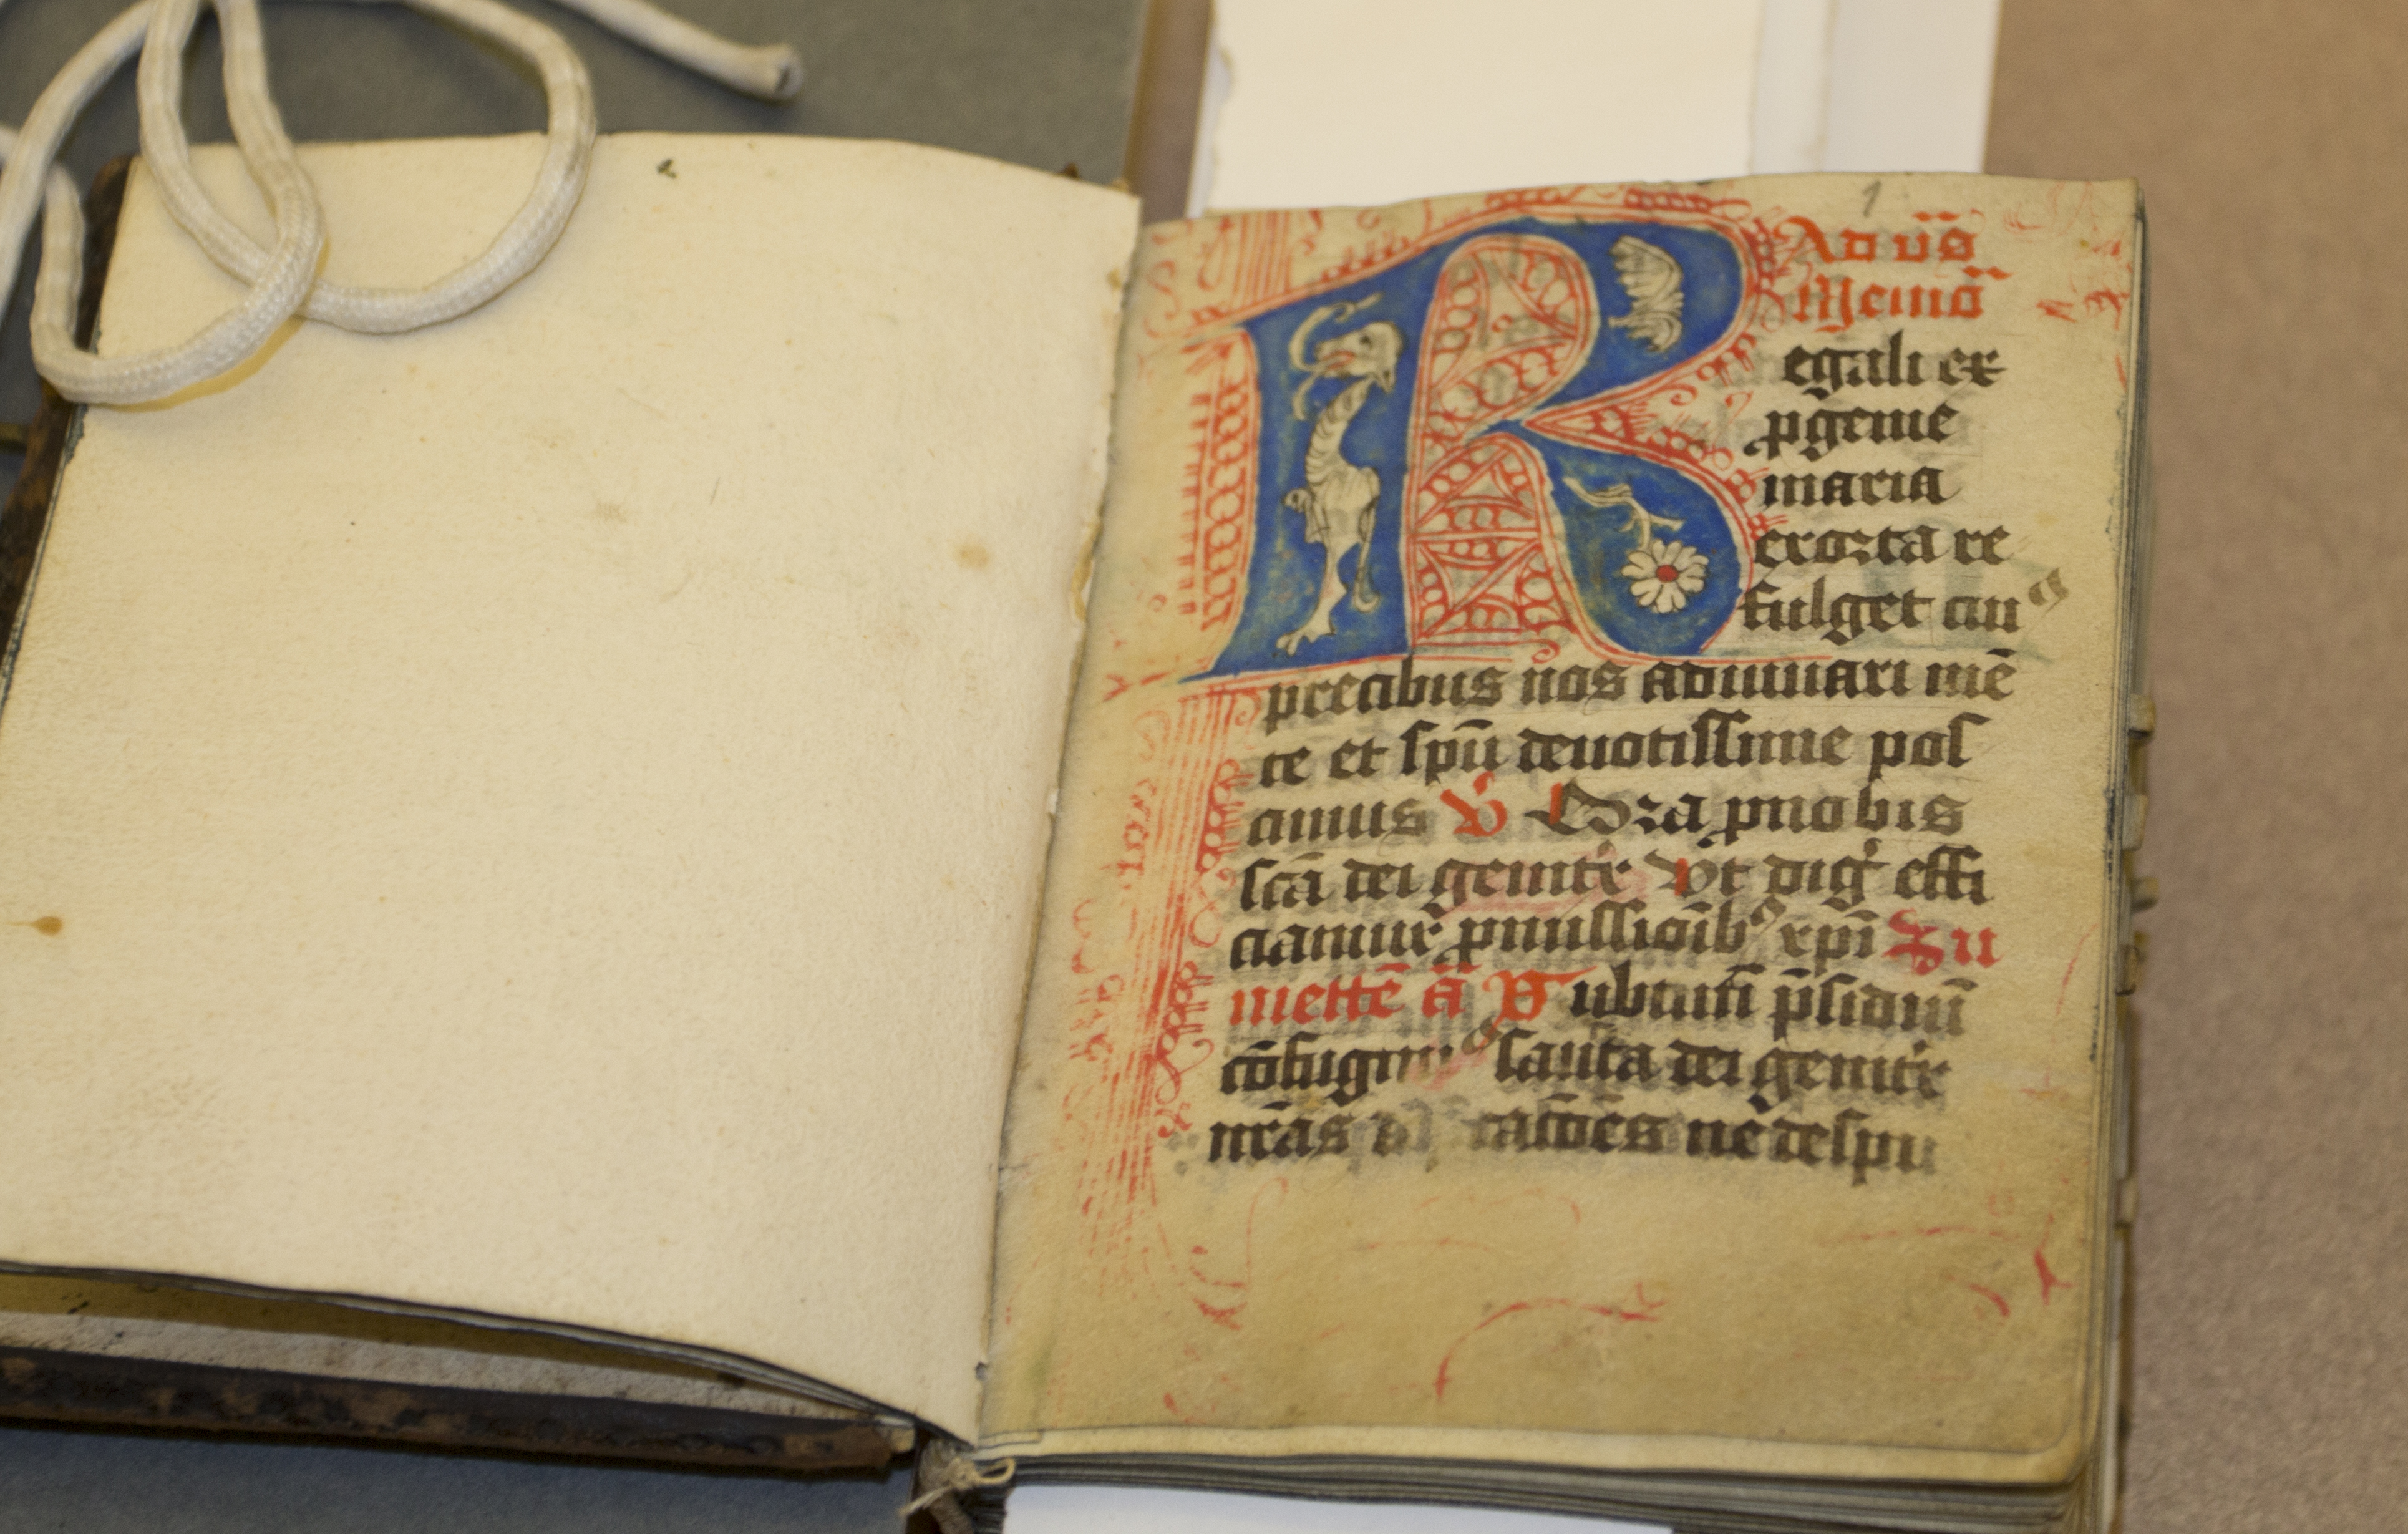 1
Ad vs̄
Memō
Regali ex
ꝓgenie
maria
exorta re
fulget cuiꝰ
precibus nos adiuuari mē
te et spū deuotissime pos
cimus V Ora ꝓ nobis
scā dei genitͥx Vt digͥ effi
ciamur ꝓmissioībꝰ xp̄i Su
mettē ā S ub tuū p̄sidiū
cōfugimꝰ sancta dei genitͥx
nr̄as tac̄ōes ne despi